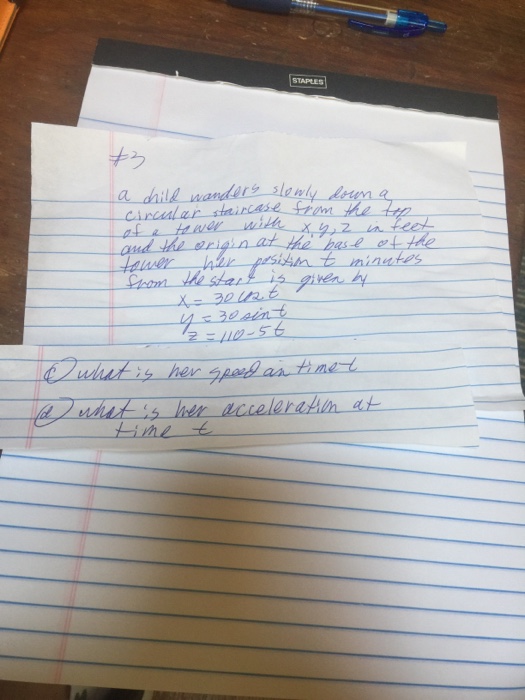 STAPLES
#3
a child wanders slowly down a
circular staircase from the top
of a tower with x, y, z in feet
and the origin at the base of the
tower her position t minutes
from the start is given by
x = 30 cos t
y = 30 sin t
z = 110 - 5t
c) what is her speed an time t
d) what is her acceleration at
time t